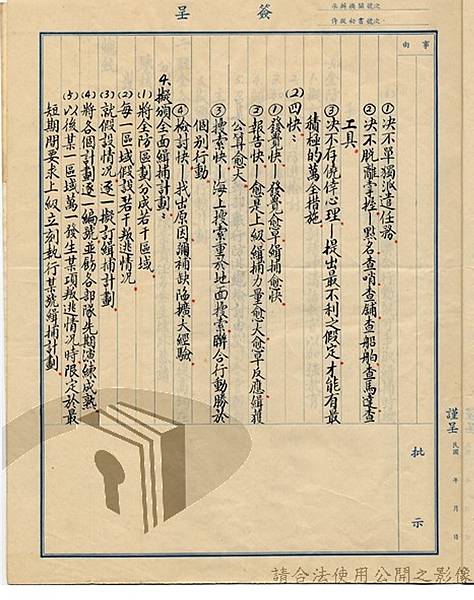 簽呈
承辦機關號次
侍從秘書號次
事由
①決不單獨派遣任務
②決不脫離掌握—點名查哨查舖查船舶查馬達查
工具
③決不存僥倖心理—提出最不利之假定才能有最
積極的萬全措施
(2)四快:
①發覺快—發覺愈早緝捕愈快
②報告快—愈是上級緝捕力量愈大愈早反應緝獲
公算愈大
③搜索快—海上搜索重於地面搜索聯合行動勝於
個別行動
④檢討快—找出原因彌補缺陷擴大經驗
4.擬頒全面緝捕計劃:
(1)將全防區劃分成若干區域
(2)每一區域假設若干叛逃情況
(3)就假設情況逐一擬訂緝捕計劃
(4)將各個計劃逐一編號並勵各部隊先期演練成熟
(5)以後某一區域萬一發生某項叛逃情況時限定於最
短期間要求上級立刻執行某號緝捕計劃
批示
謹呈
民國 年 月 日
請合法使用公開之影像